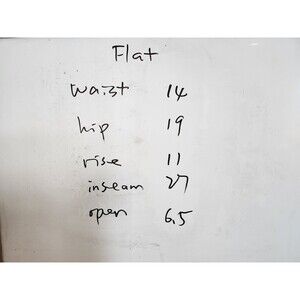 Flat
waist 14
hip 19
rise 11
inseam 27
open 6.5